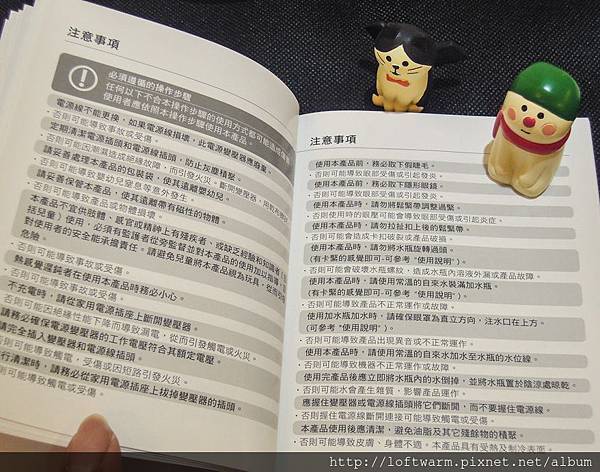 注意事項
必須遵循的操作步驟
任何以下不合本操作步驟的使用方式都可能造成
使用者應依照本操作步驟使用本產品。
電源線不能更換,如果電源線損壞,此電源變壓器應廢棄。
·否則可能導致事故或受傷。
定期清潔電源插頭和電源線插頭,防止灰塵積聚。
·否則可能因潮濕造成絕緣故障,而引發火災。斷開變壓器,用乾布擦拭
請妥善處理本產品的包裝袋,使其遠離嬰幼兒。
·否則可能導致嬰幼兒窒息等意外發生。
請妥善保管本產品,使其遠離帶有磁性的物體。
·否則可能導致產品或物體損壞。
本產品不宜供肢體、感官或精神上有殘疾者,或缺乏經驗和知識者
括兒童)使用,必須有監護者從旁監督並對本產品的使用加以指導
對使用者的安全能承擔責任。請避免兒童將本產品視為玩具,從而
危險。
·否則可能導致事故或受傷。
熱感覺遲鈍者在使用本產品時務必小心。
不充電時,請從家用電源插座上斷開變壓器。
·否則可能因絕緣性能下降而導致漏電,從而引發觸電或火災。
請務必確保電源變壓器的工作電壓符合其額定電壓。
請完全插入變壓器和電源線插頭。
·否則可能導致觸電、受傷或因短路引發火災。
行清潔時,請務必從家用電源插座上拔掉變壓器的插頭。
則可能導致觸電或受傷。
注意事項
使用本產品前,務必取下假睫毛。
·否則可能導致眼部受傷或引起發炎。
使用本產品前,務必取下隱形眼鏡。
·否則可能導致眼部受傷或引起發炎。
使用本產品時,請勿將鬆緊帶調整過緊。
·否則使用時的眼壓可能會導致眼部受傷或引起炎症。
使用本產品時,請勿拉扯扣上後的鬆緊帶。
·否則可能會造成卡扣破裂或產品破損。
使用本產品時,請勿將水瓶旋轉過頭。
(有卡緊的感覺即可-可參考 “使用說明”)。
·否則可能會破壞水瓶螺紋,造成水瓶內溶液外漏或產品故障。
使用本產品時,請使用常溫的自來水裝滿加水瓶。
(有卡緊的感覺即可-可參考 “使用說明”)。
·否則可能導致產品不正常運作或故障。
使用加水瓶加水時,請確保眼罩為直立方向,注水口在上方。
(可參考 “使用說明”)。
·否則可能導致產品出現異音或不正常運作。
使用本產品時,請使用常溫的自來水加水至水瓶的水位線。
·否則可能導致機器不正常運作或故障。
使用完產品後應立即將水瓶內的水倒掉,並將水瓶置於陰涼處晾乾。
·否則可能水會產生雜質,影響產品運作。
應握住變壓器或電源線插頭將它們斷開,而不要握住電源線。
·否則握住電源線斷開連接可能導致觸電或受傷。
本產品使用後應清潔,避免油脂及其它殘餘物的積聚。
·否則可能導致皮膚、身體不適。本產品具有受熱及制冷表面。
http://loftwarm.pixnet.net/album